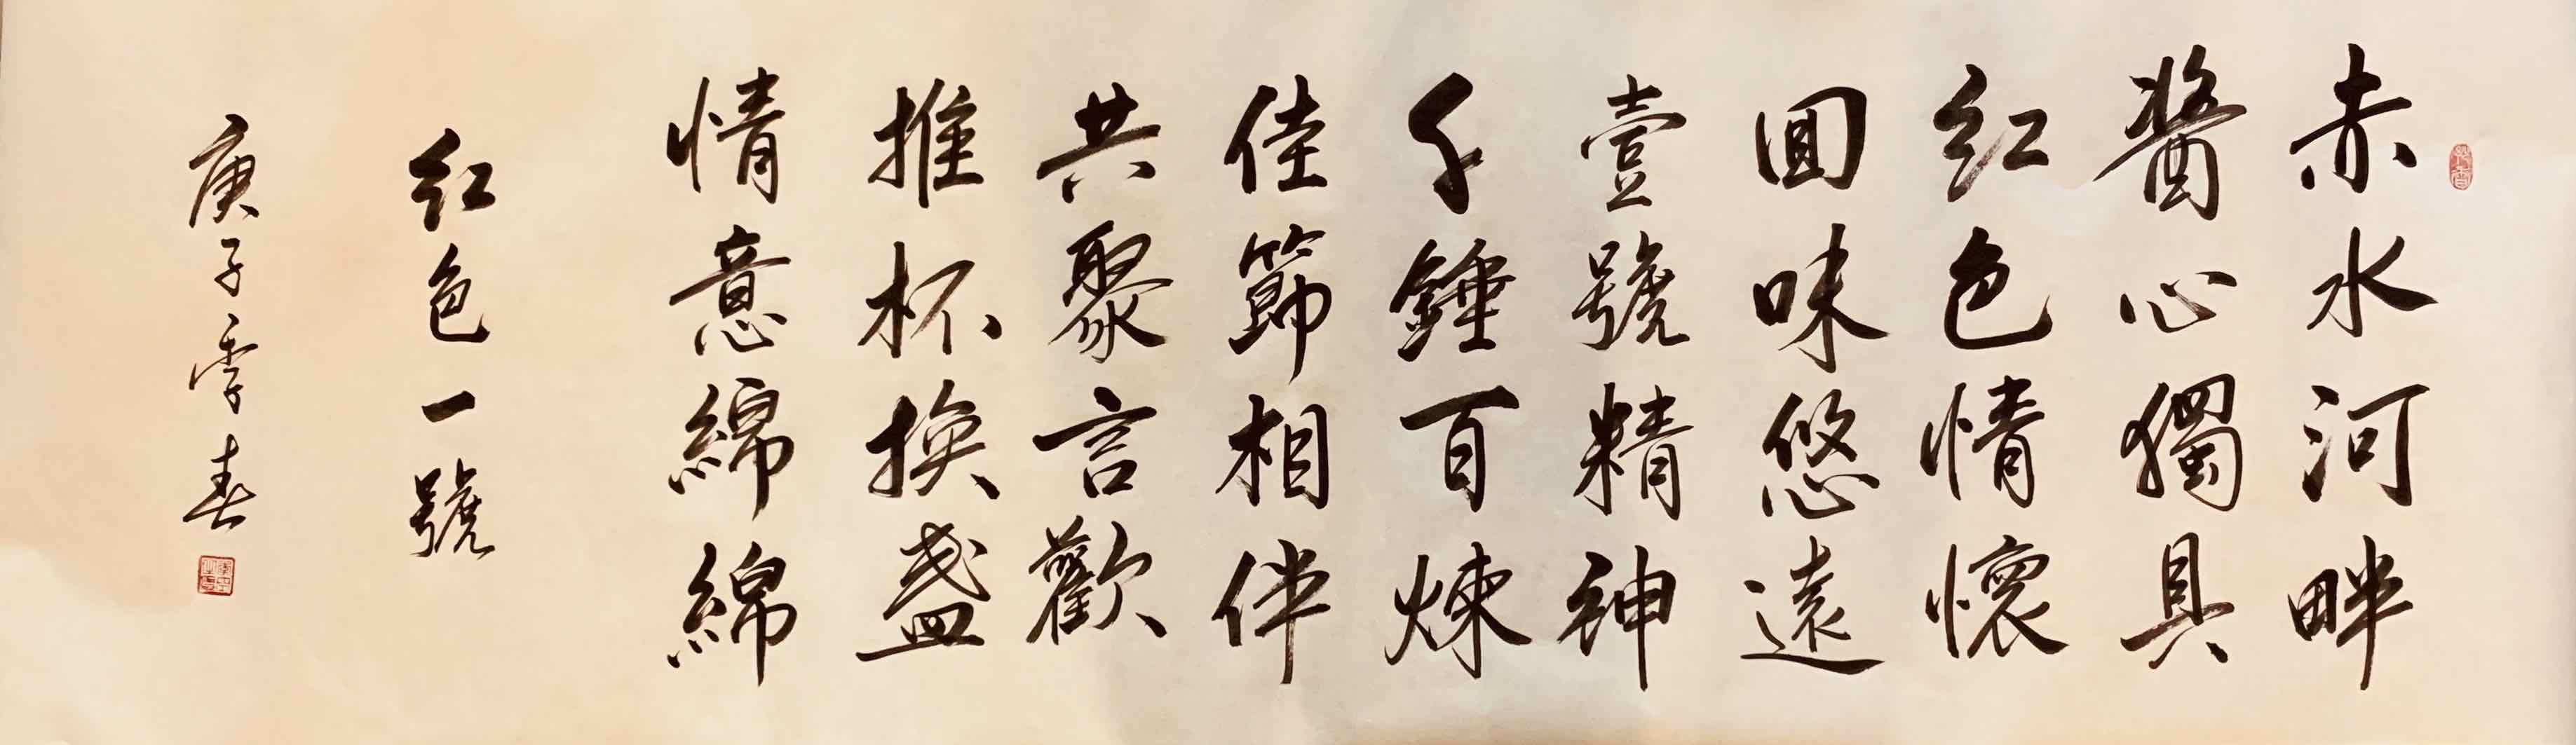 赤水河畔
醬心獨具
红色情懷
回味悠遠
壹號精神
千錘百煉
佳節相伴
共聚言歡
推杯換盞
情意綿綿
红色一號
庚子季春